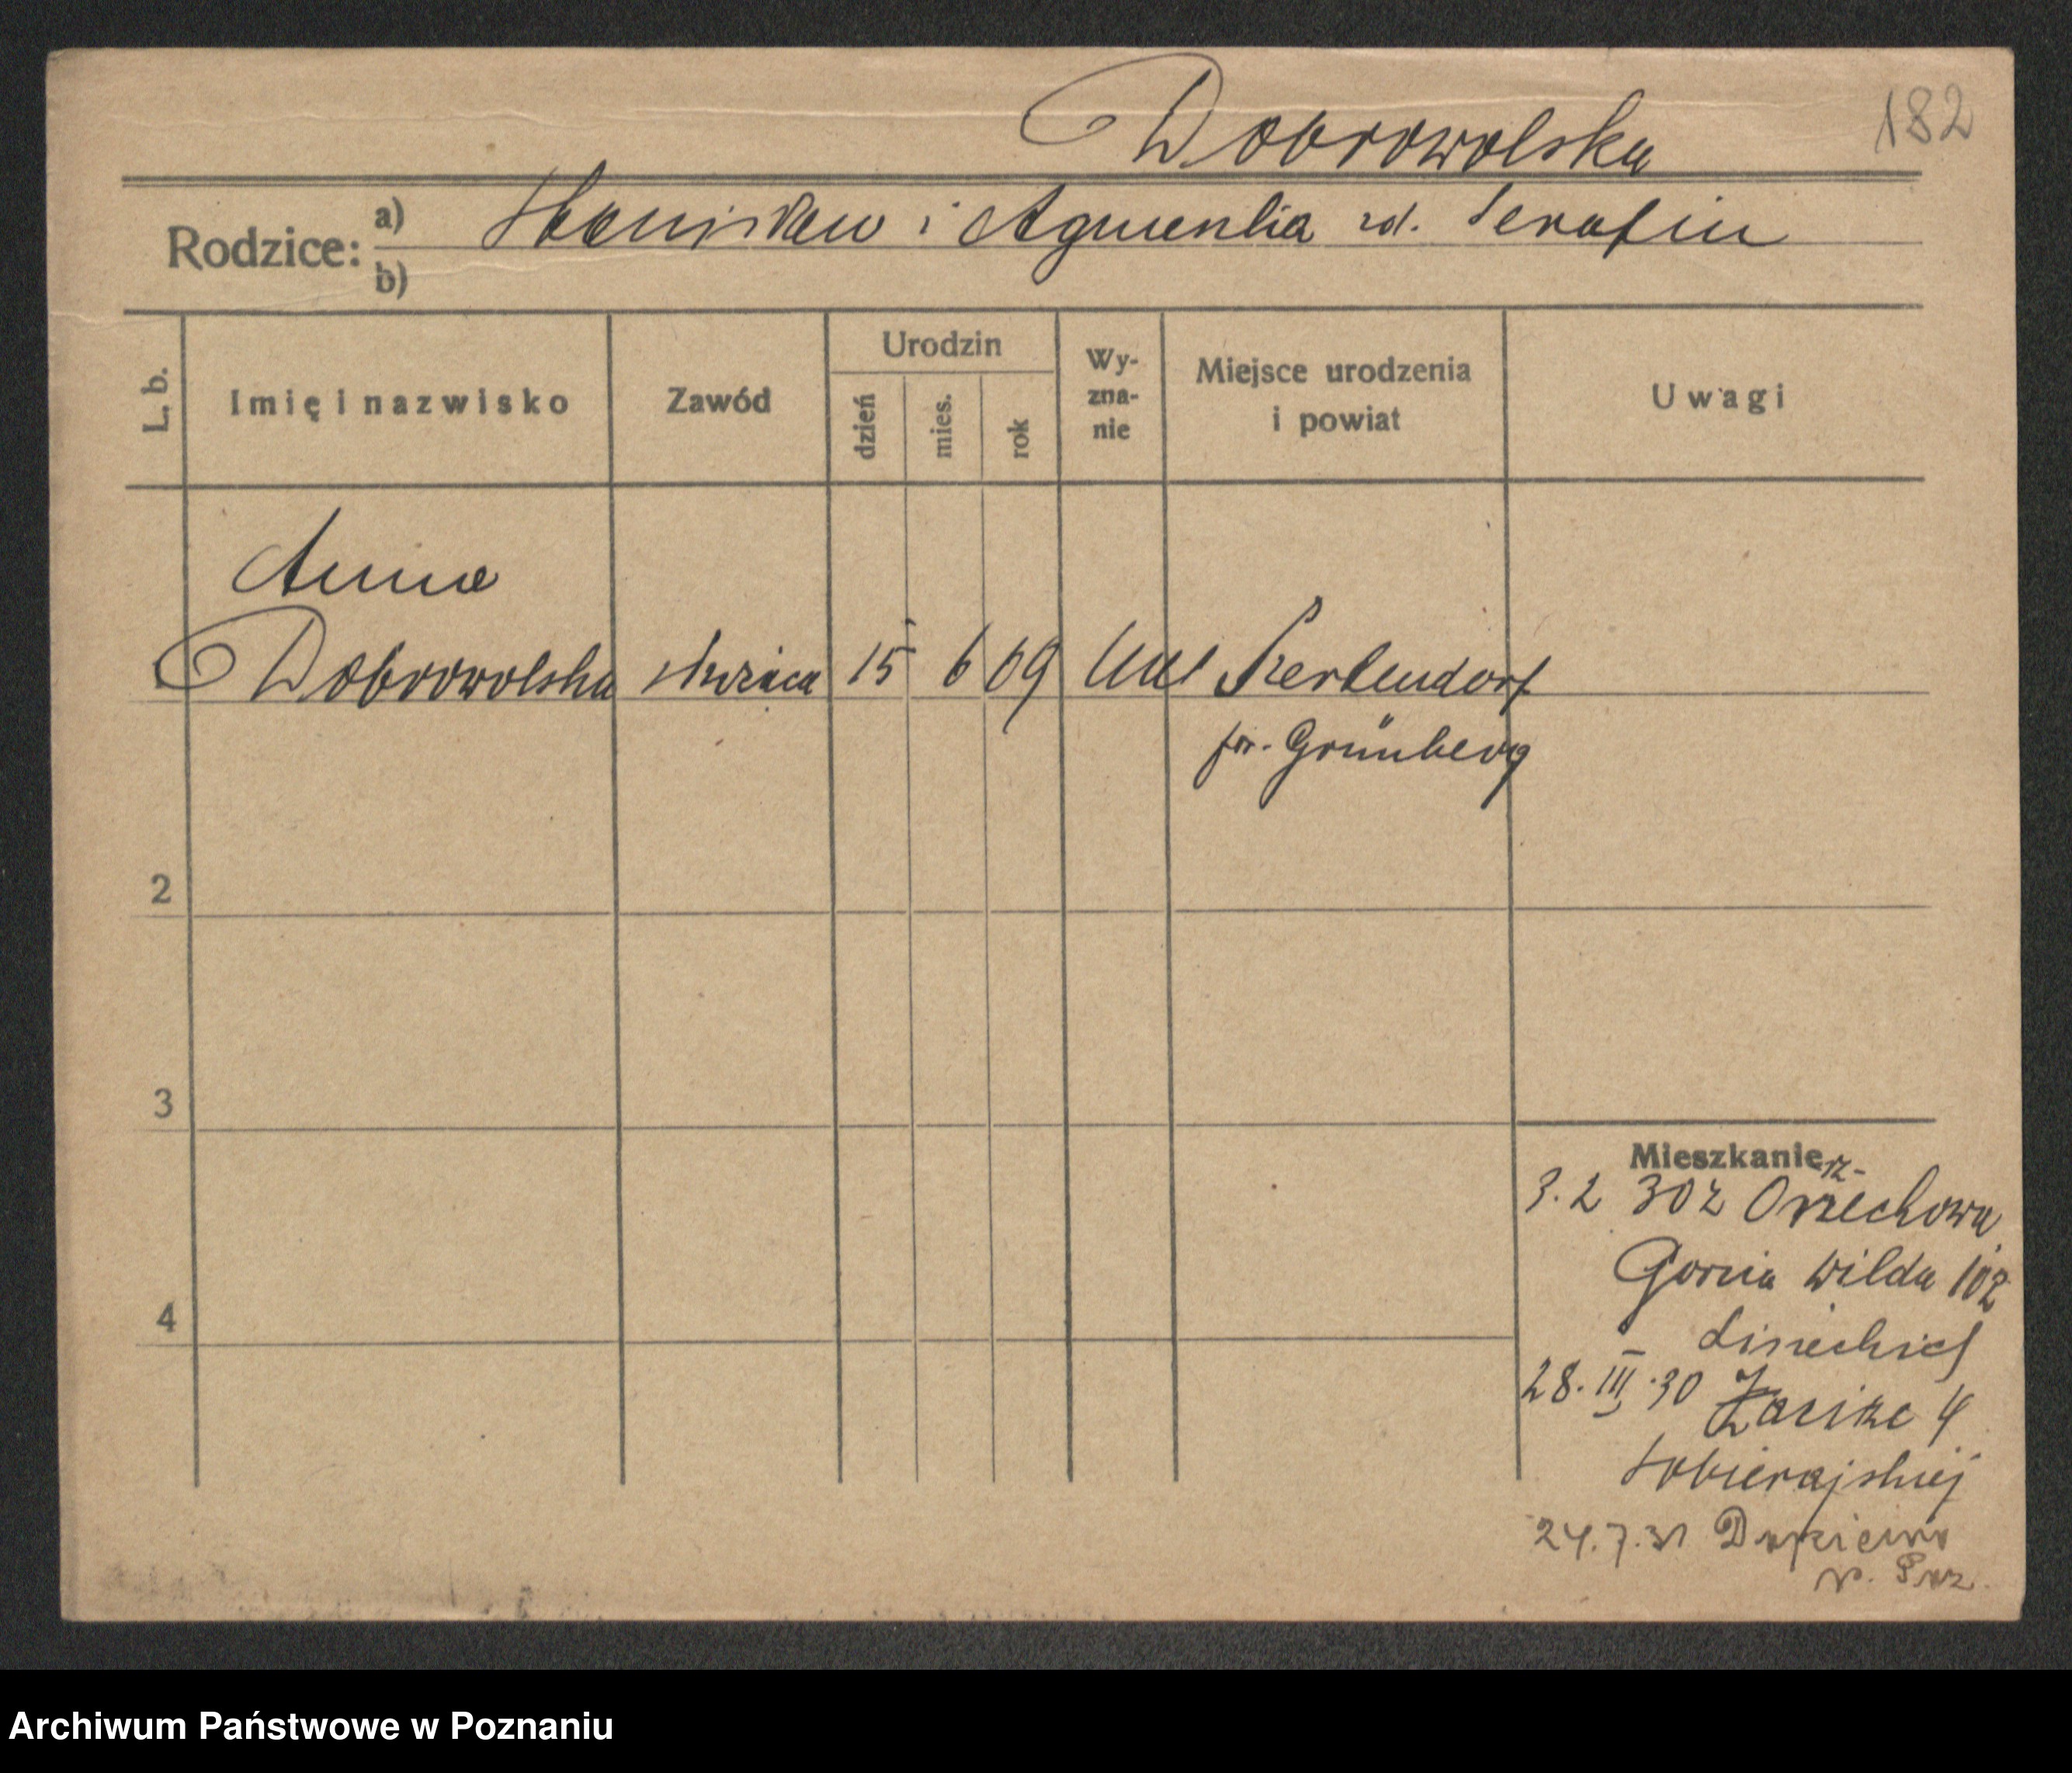 182
Dobrowolska
Rodzice: a) Stanisław i Agnieszka rd. Serafin
b)
L. b.
Imię i nazwisko
Zawód
Urodzin
dzień
mies.
rok
Wy-
zna-
nie
Miejsce urodzenia
i powiat
Uwagi
Anna
Dobrowolska służąca 15 6 09
pr. Grünberg
2
3
4
Mieszkanie
3.2 30 z Orzechowa
Gorna Wilda 102
28.III.30 4
Sobierajskiej
24.7.31
p. Poz.
Archiwum Państwowe w Poznaniu